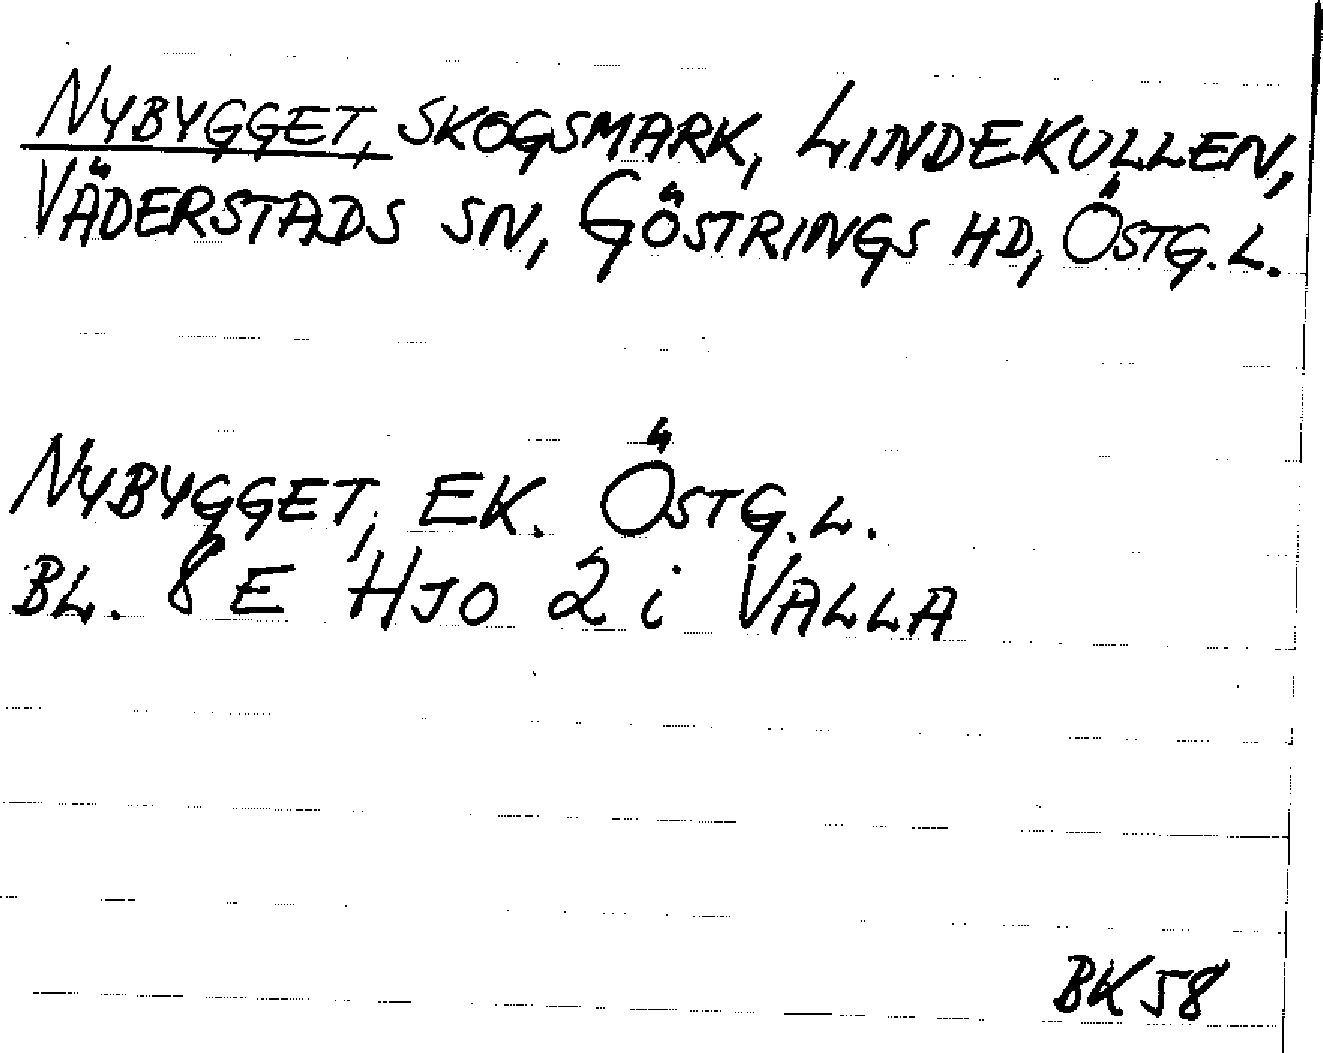 NYBYGGET, SKOGSMARK, LINDEKULLEN,
VÄDERSTADS SN, GÖSTRINGS HD, ÖSTG.L.
NYBYGGET, EK. ÖSTG.L.
BL. 8 E HJO 2 i VALLA
BK58